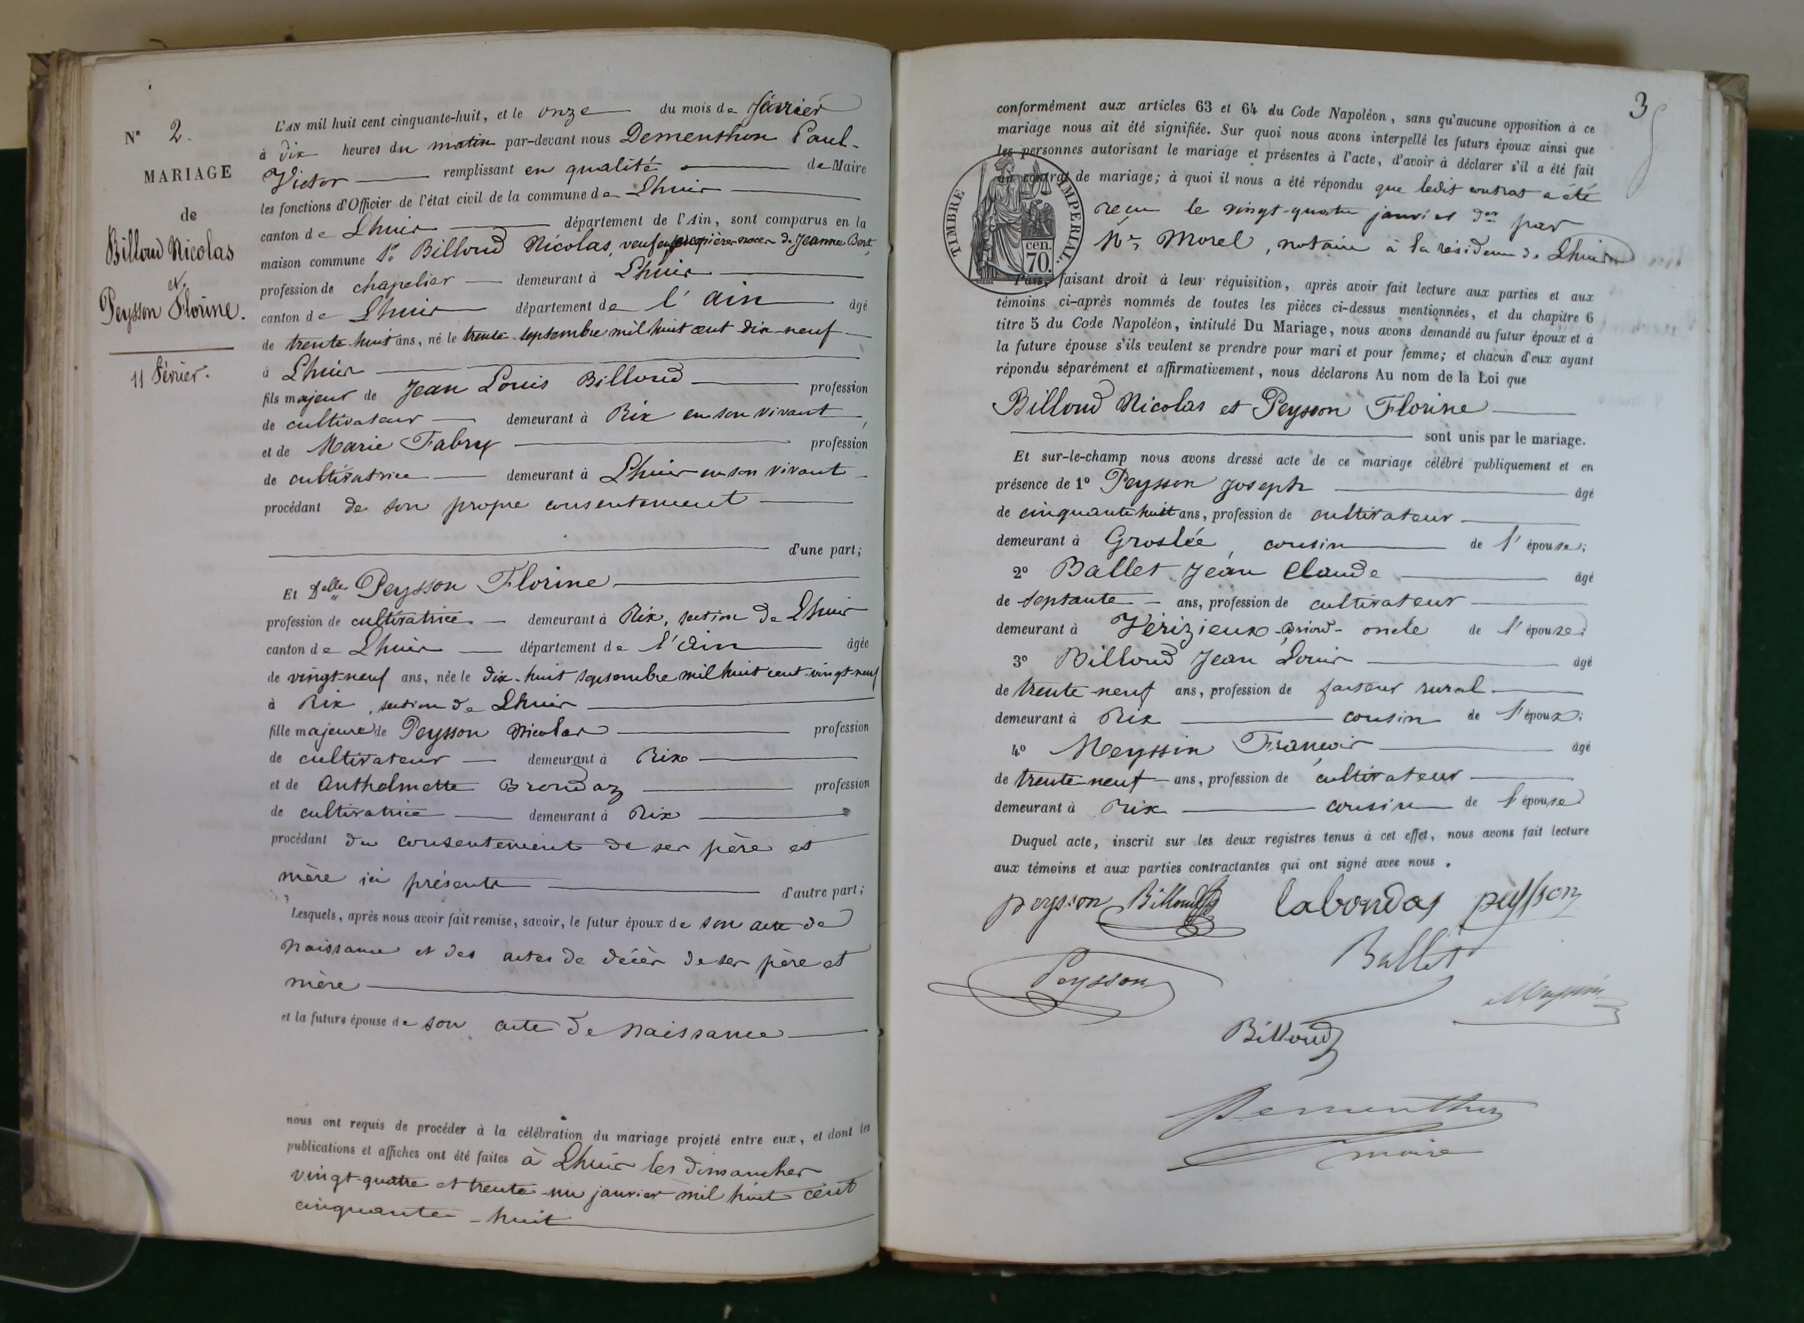 N° 2.
MARIAGE
de
Billoud Nicolas
et
Peysson Florine.
11 février.
L'AN mil huit cent cinquante-huit, et le onze du mois de février
à dix heures du matin par-devant nous Dementhon Paul-
Victor remplissant en qualité de Maire
les fonctions d'Officier de l'état civil de la commune de Lhuis
canton de Lhuis département de l'Ain, sont comparus en la
maison commune 1° Billoud Nicolas, veuf en premières noces de Jeanne Bort,
profession de chapelier demeurant à Lhuis
canton de Lhuis département de l'ain âgé
de trente-huit ans, né le trente septembre mil huit cent dix-neuf
à Lhuis
fils majeur de Jean Louis Billoud profession
de cultivateur demeurant à Rix en son vivant,
et de Marie Fabry profession
de cultivatrice demeurant à Lhuis en son vivant
procédant de son propre consentement
d'une part;
Et Delle Peysson Florine
profession de cultivatrice demeurant à Rix, section de Lhuis
canton de Lhuis département de l'ain âgée
de vingt-neuf ans, née le dix-huit septembre mil huit cent vingt-neuf
à Rix, section de Lhuis
fille majeure de Peysson Nicolas profession
de cultivateur demeurant à Rix
et de Anthelmette Brondaz profession
de cultivatrice demeurant à Rix
procédant du consentement de ses père et
mère ici présents d'autre part;
Lesquels, après nous avoir fait remise, savoir, le futur époux de son acte de
naissance et des actes de décès de ses père et
mère
et la future épouse de son acte de naissance
nous ont requis de procéder à la célébration du mariage projeté entre eux, et dont les
publications et affiches ont été faites à Lhuis les dimanches
vingt-quatre et trente-un janvier mil huit cent
cinquante-huit
3
conformément aux articles 63 et 64 du Code Napoléon, sans qu'aucune opposition à ce
mariage nous ait été signifiée. Sur quoi nous avons interpellé les futurs époux ainsi que
les personnes autorisant le mariage et présentes à l'acte, d'avoir à déclarer s'il a été fait
un contrat de mariage; à quoi il nous a été répondu que ledit contrat a été
reçu le vingt-quatre janvier der par
Mr Morel, notaire à la résidence de Lhuis
TIMBRE IMPERIAL
70 cen.
Puis, faisant droit à leur réquisition, après avoir fait lecture aux parties et aux
témoins ci-après nommés de toutes les pièces ci-dessus mentionnées, et du chapitre 6
titre 5 du Code Napoléon, intitulé Du Mariage, nous avons demandé au futur époux et à
la future épouse s'ils veulent se prendre pour mari et pour femme; et chacun d'eux ayant
répondu séparément et affirmativement, nous déclarons Au nom de la Loi que
Billoud Nicolas et Peysson Florine
sont unis par le mariage.
Et sur-le-champ nous avons dressé acte de ce mariage célébré publiquement et en
présence de 1° Peysson Joseph âgé
de cinquante huit ans, profession de cultivateur
demeurant à Groslée, cousin de l'épouse;
2° Ballet Jean Claude âgé
de septante ans, profession de cultivateur
demeurant à Vérizieux-Briord- oncle de l'épouse;
3° Billoud Jean Louis âgé
de trente-neuf ans, profession de facteur rural
demeurant à Rix cousin de l'époux;
4° Meyssin François âgé
de trente-neuf ans, profession de cultivateur
demeurant à Rix cousin de l'épouse
Duquel acte, inscrit sur les deux registres tenus à cet effet, nous avons fait lecture
aux témoins et aux parties contractantes qui ont signé avec nous.
peysson Billoud labondas peysson
Ballet
Peysson
Meyssin
Billoud
Dementhon
maire